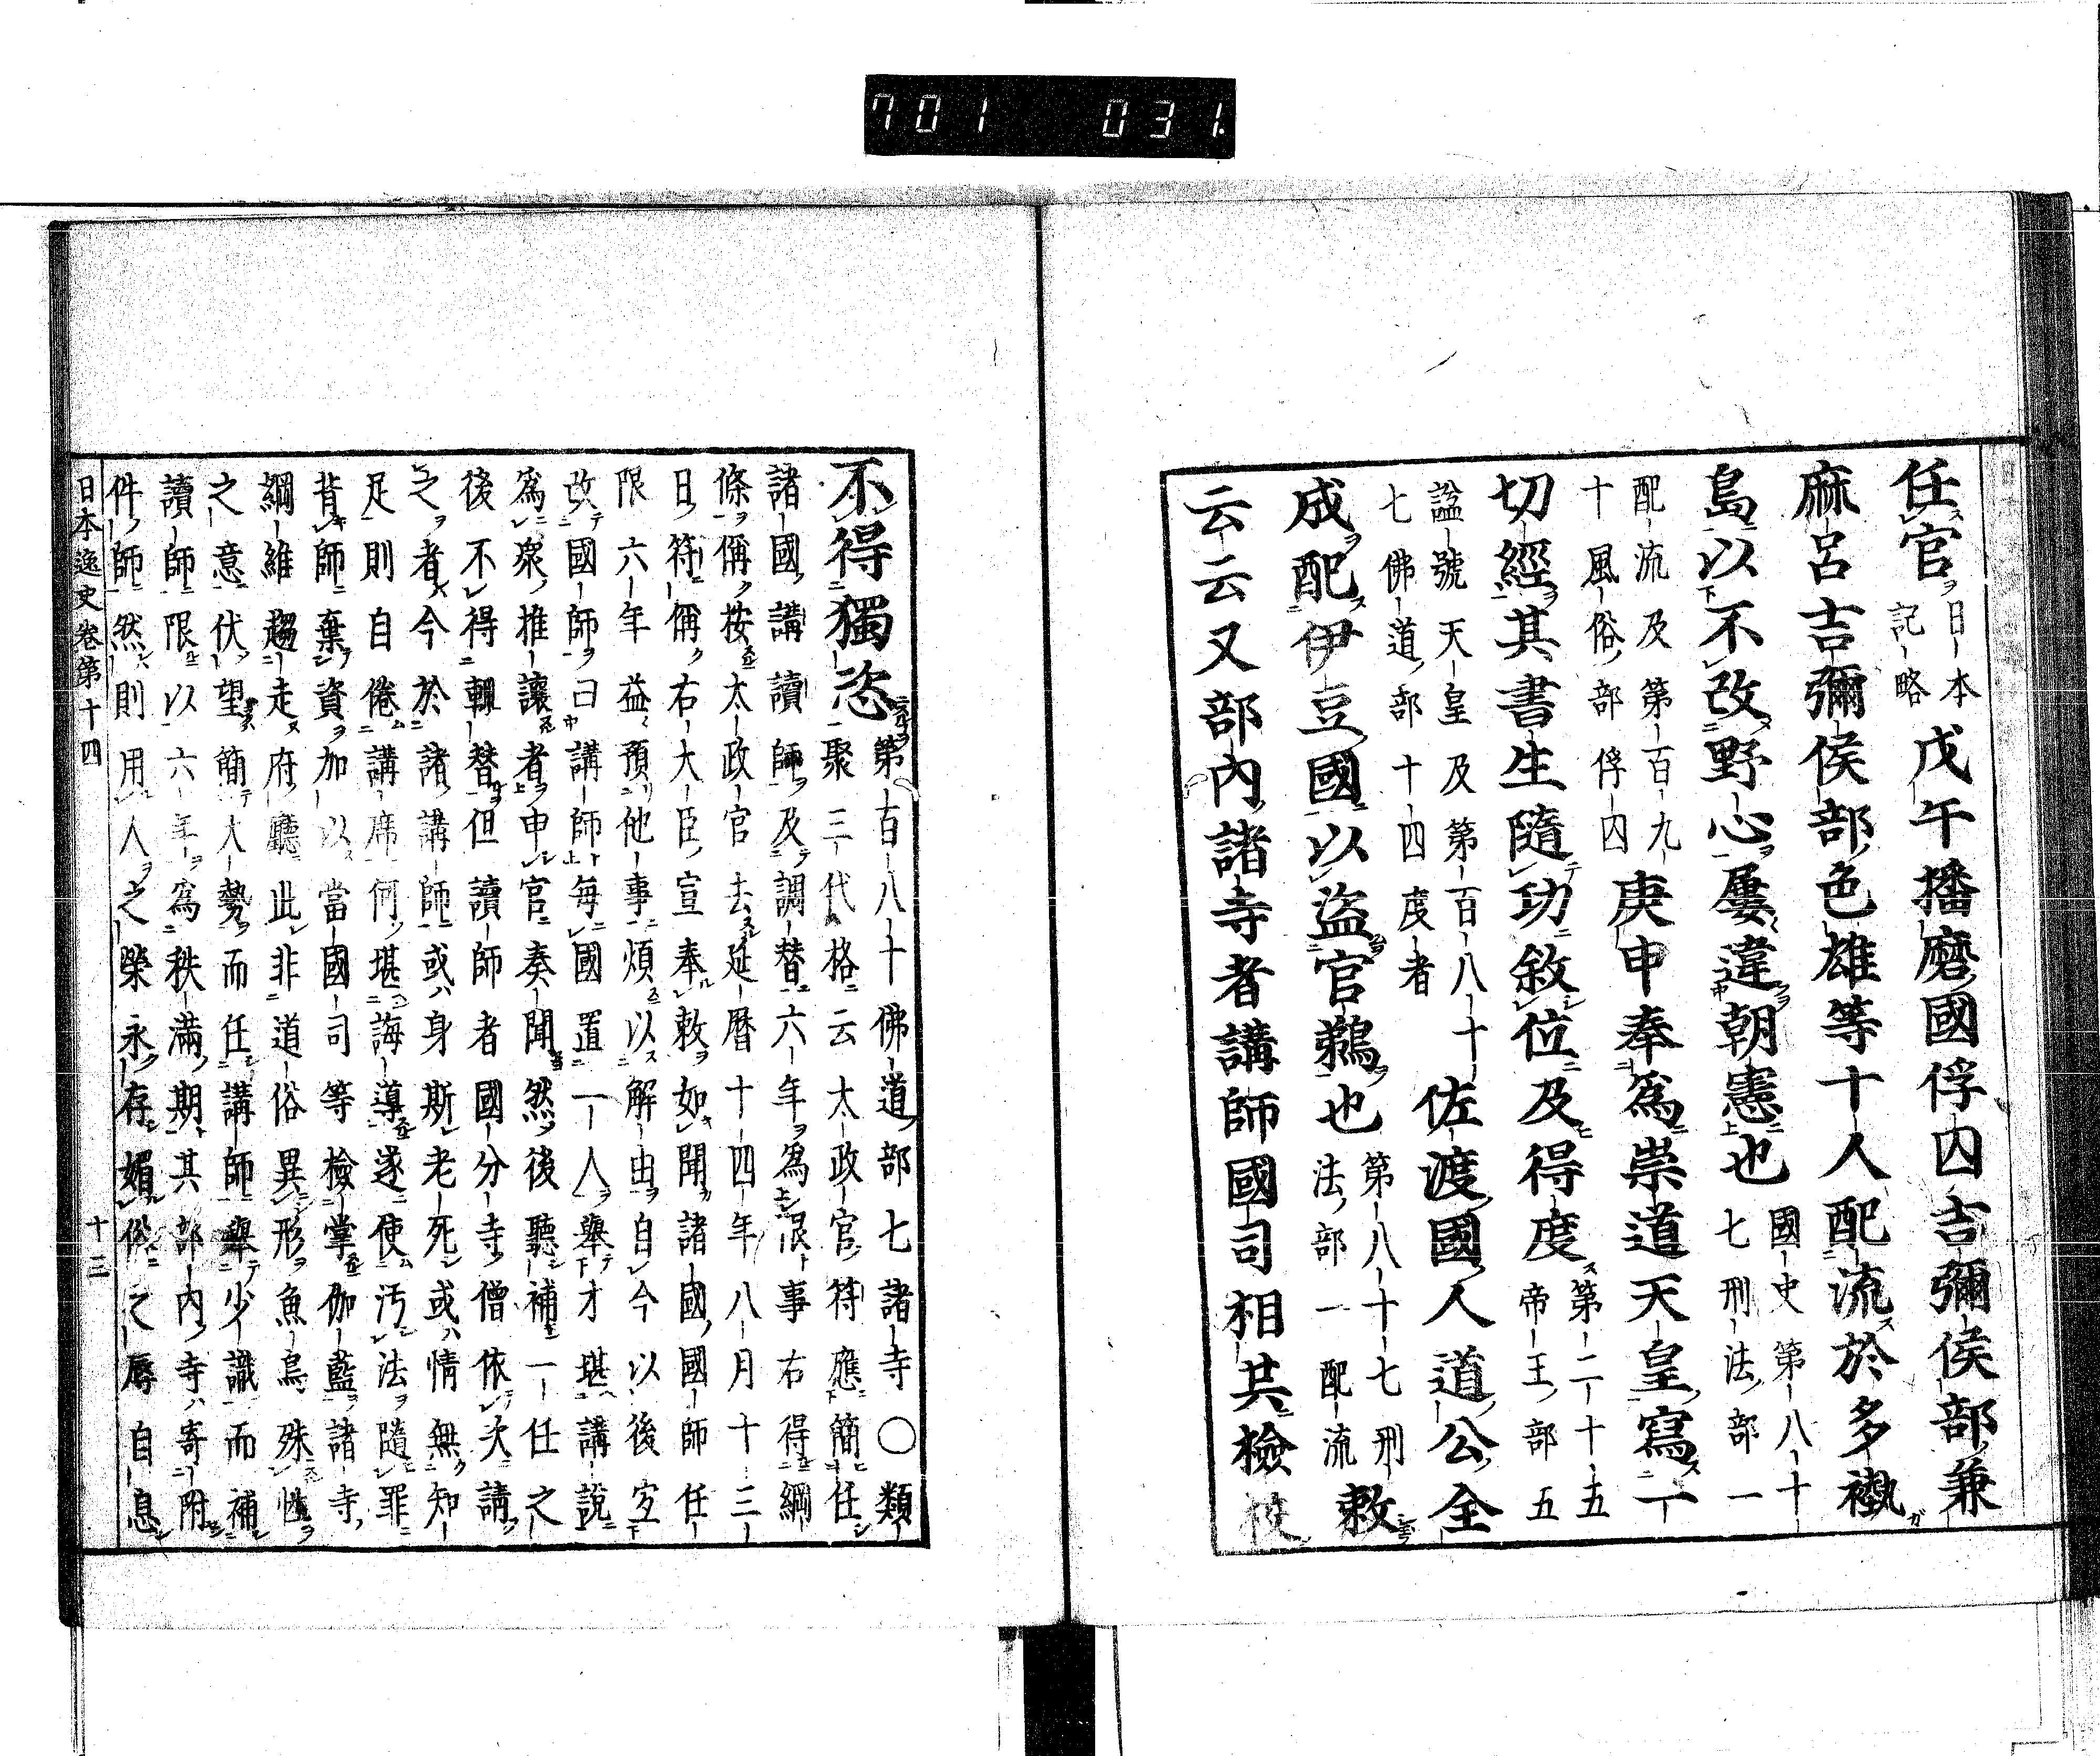 701 031
任官 日本
記略 戊午播磨國俘囚吉彌侯部兼
麻呂吉彌侯部色雄等十人配流於多褹
島以不改野心屢違朝憲也 國史第八十
七刑法部一
配流及第百九
十風俗部俘囚 庚申奉爲崇道天皇寫一
切經其書生隨功敘位及得度 第二十五
帝王部五
諡號天皇及第百八十
七佛道部十四度者 佐渡國人道公全
成配伊豆國以盜官鵜也 第八十七刑
法部一配流 敕
云云又部內諸寺者講師國司相共檢校
不得獨恣 第百八十佛道部七諸寺○類
聚三代格云太政官符應簡任
諸國講讀師及調替六年爲限事右得綱
條偁按太政官去延曆十四年八月十三
日符偁右大臣宣奉敕如聞諸國國師任
限六年益預他事煩以解由自今以後宜
改國師曰講師每國置一人舉才堪講說
爲衆推讓者申官奏聞然後聽補一任之
後不得輙替但讀師者國分寺僧依次請
之者今於諸講師或身斯老死或情無知
足則自倦講席何堪誨導遂使汚法隨罪
背師棄資加以當國司等檢掌伽藍諸寺
綱維趨走府廳此非道俗異形魚烏殊性
之意伏望簡大勢而任講師舉少識而補
讀師限以六年爲秩滿期其部內寺寄附
件師然則用人之榮永存媚俗之辱自息
日本逸史卷第十四 十三